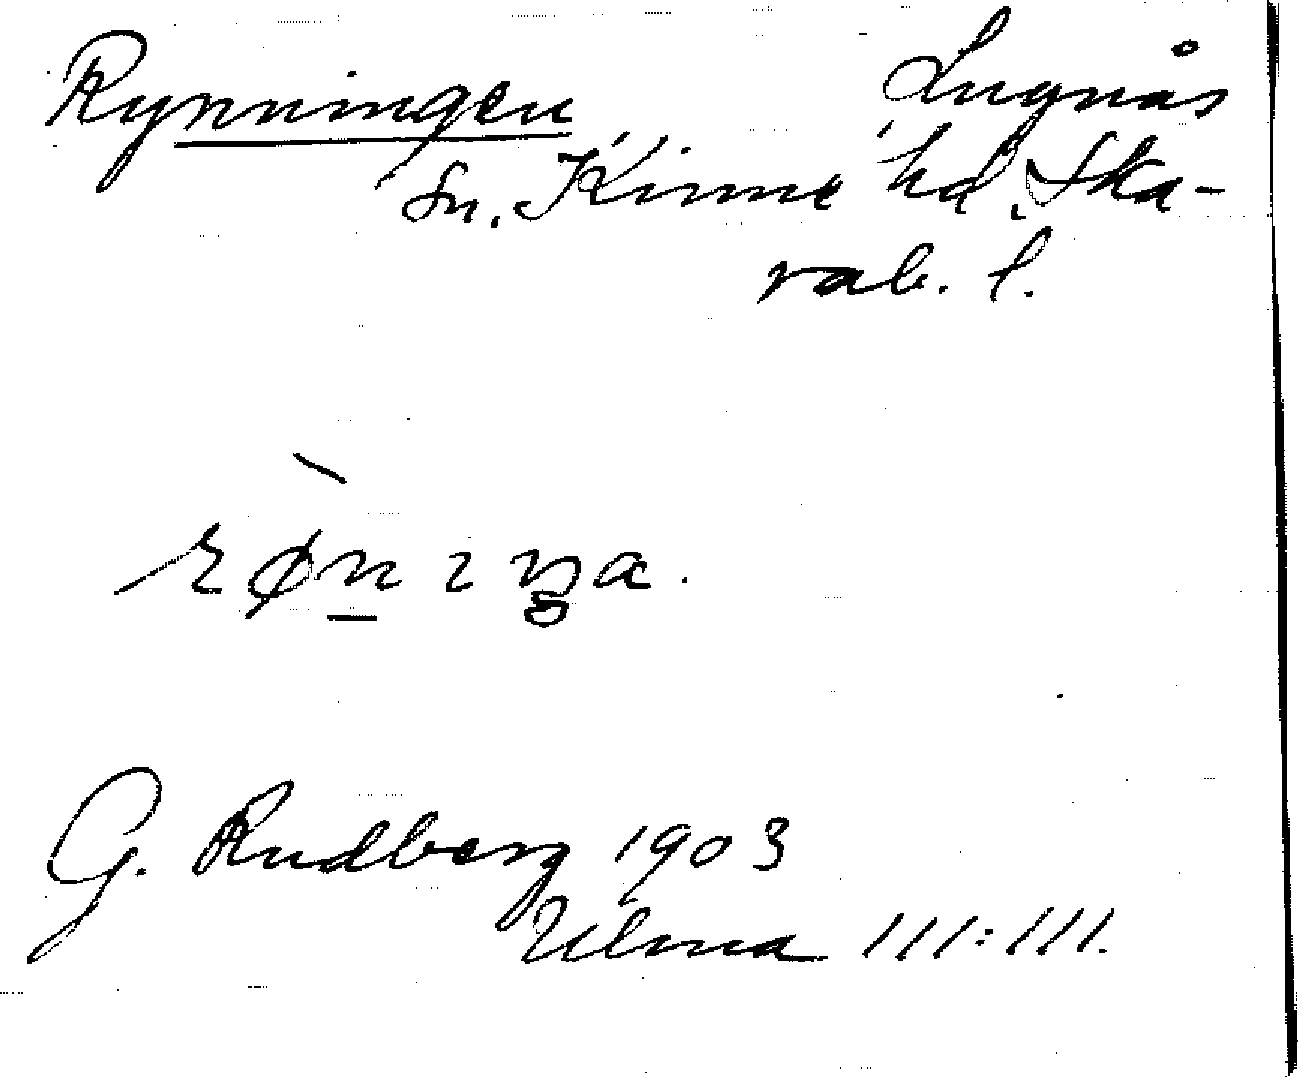 Rynningen Lugnås
sn. Kinne hd. Ska-
rab. l.
G. Rudberg 1903
Ulma 111:111.